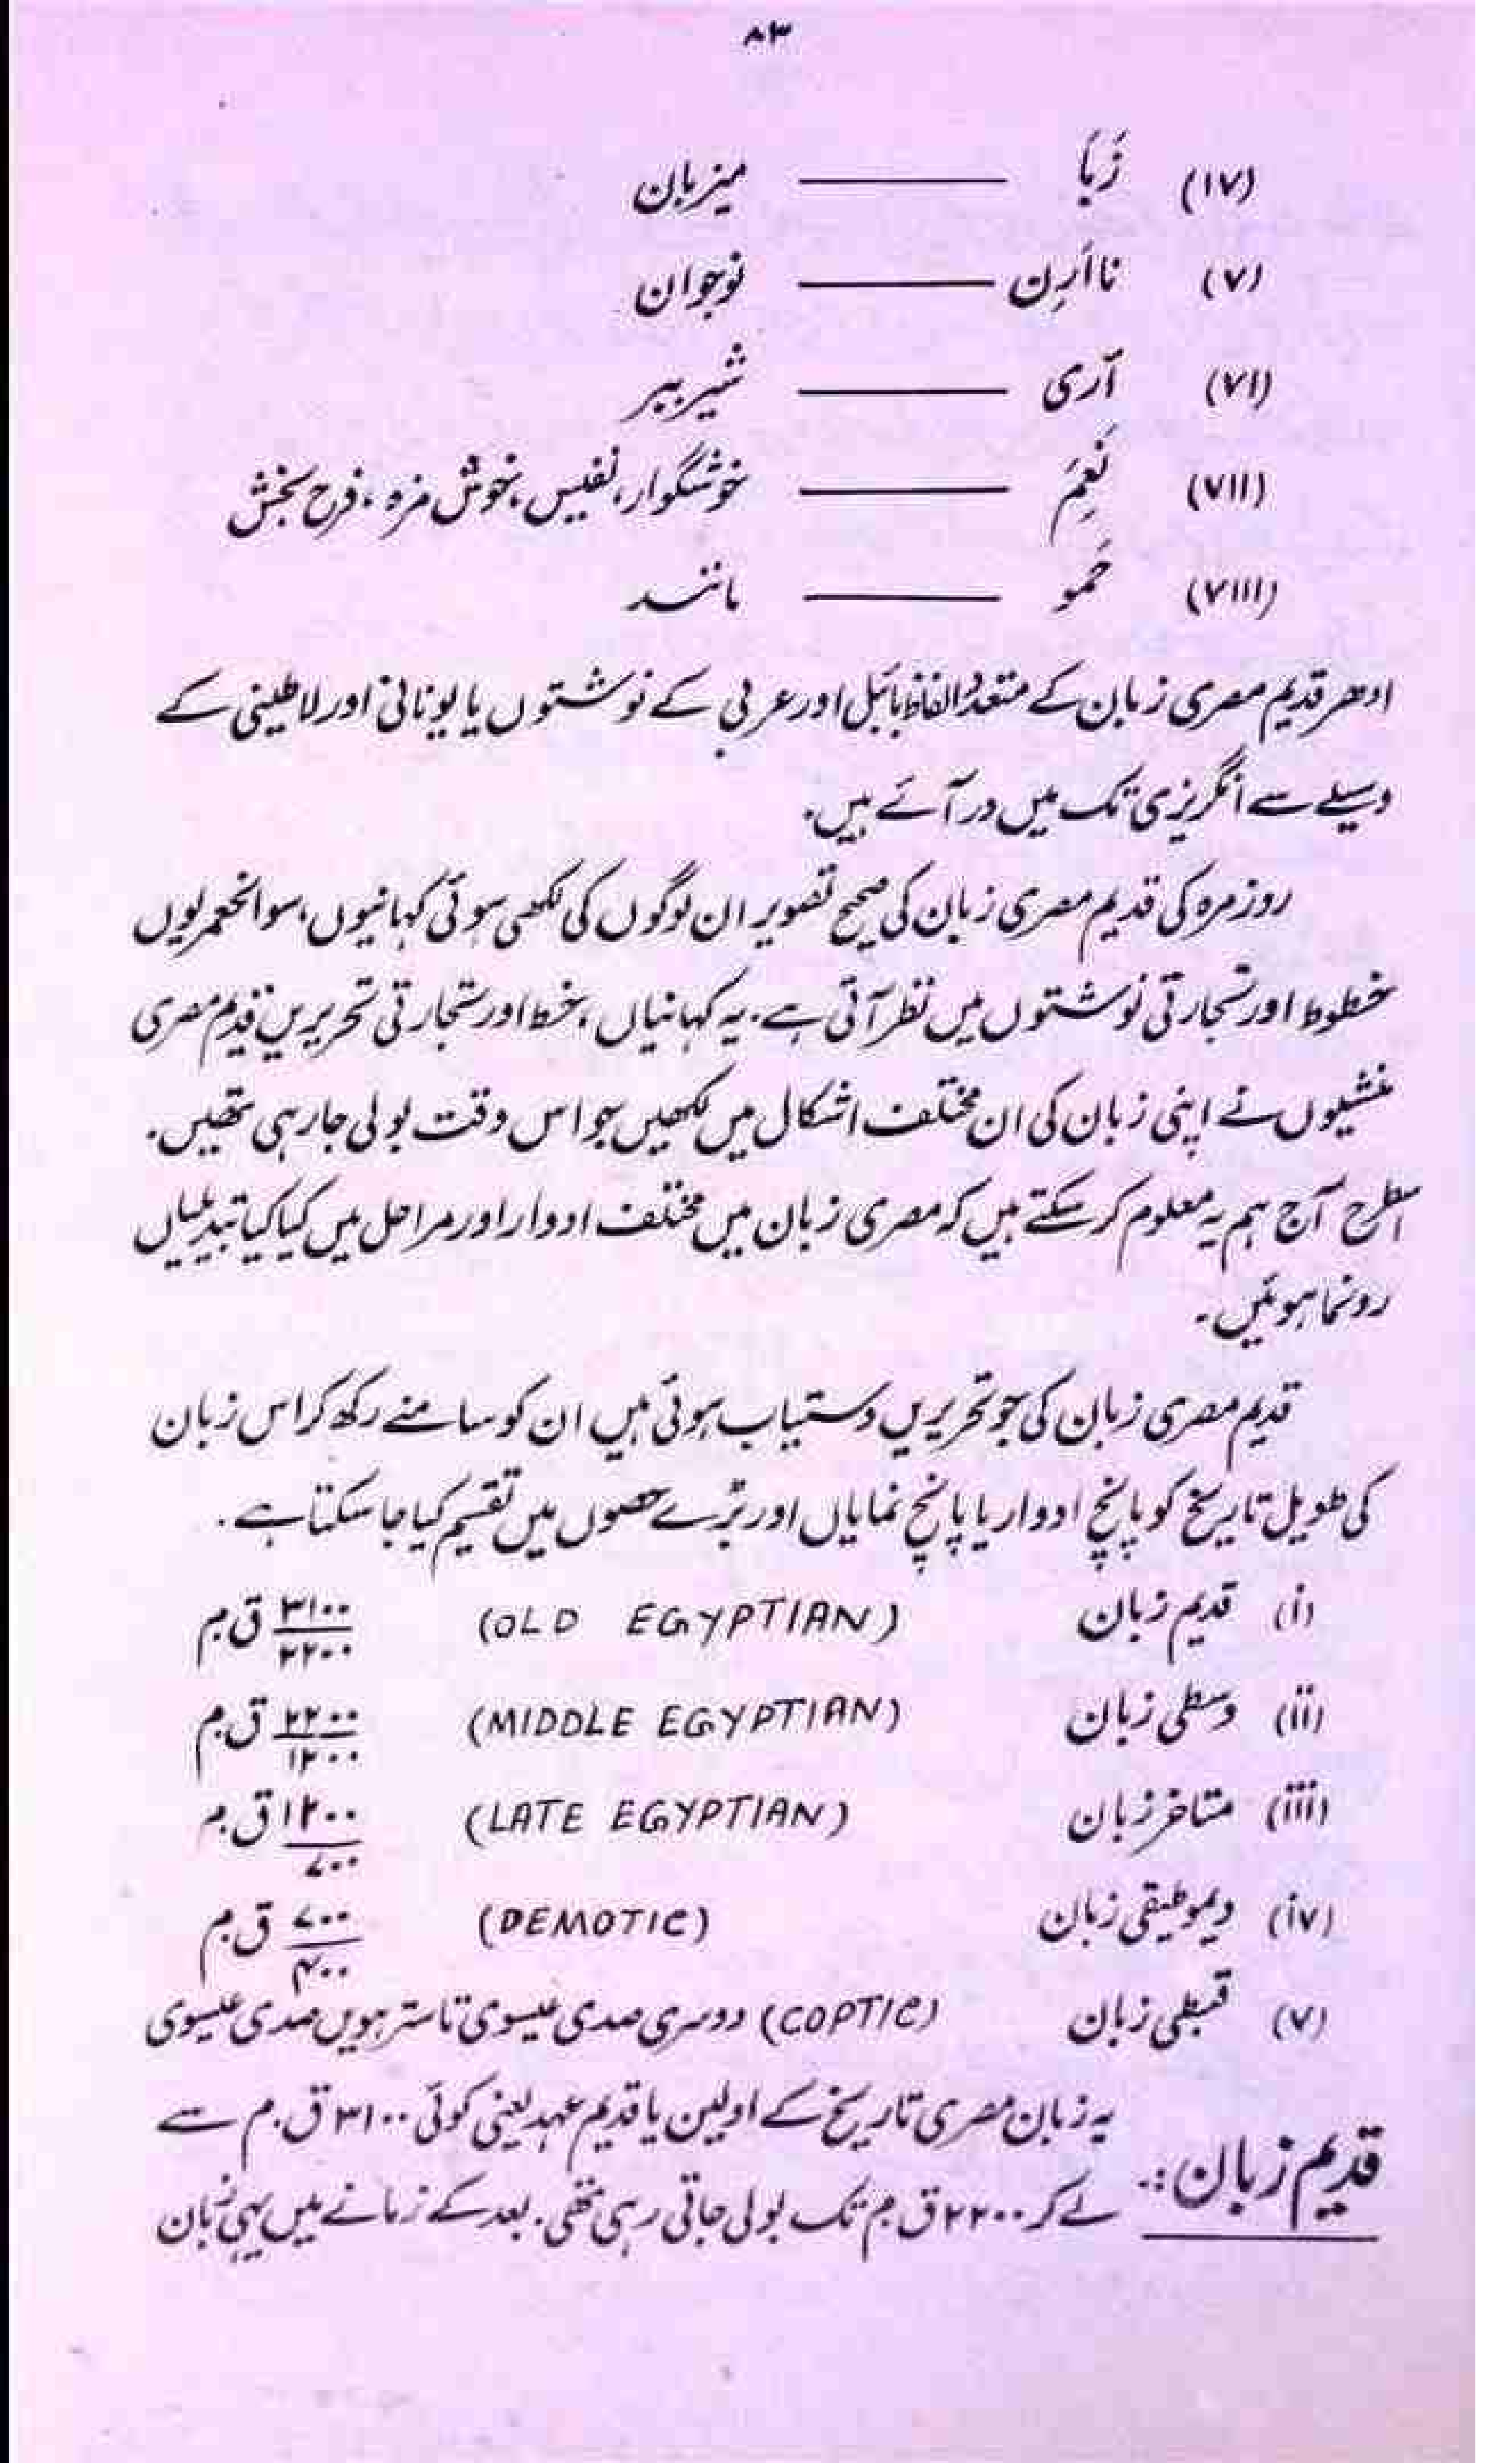 ۸۳
(IV) زَبَاَ ——— میزبان
(V) نااَرِن ——— نوجوان
(VI) آری ——— شیر ببر
(VII) نَعِمَ ——— خوشگوار، نفیس، خوش مزہ، فرح بخش
(VIII) حَمو ——— مانند
ادھر قدیم مصری زبان کے متعدد الفاظ بائبل اور عربی کے نوشتوں یا یونانی اور لاطینی کے
وسیلے سے انگریزی تک میں در آئے ہیں.
روزمرہ کی قدیم مصری زبان کی صحیح تصویر ان لوگوں کی لکھی ہوئی کہانیوں، سوانحعمریوں
خطوط اور تجارتی نوشتوں میں نظر آتی ہے. یہ کہانیاں، خط اور تجارتی تحریریں قدیم مصری
منشیوں نے اپنی زبان کی ان مختلف اشکال میں لکھیں جو اس وقت بولی جا رہی تھیں.
اسطرح آج ہم یہ معلوم کر سکتے ہیں کہ مصری زبان میں مختلف ادوار اور مراحل میں کیا کیا تبدیلیاں
رونما ہوئیں۔
قدیم مصری زبان کی جو تحریریں دستیاب ہوئی ہیں ان کو سامنے رکھ کر اس زبان
کی طویل تاریخ کو پانچ ادوار یا پانچ نمایاں اور بڑے حصوں میں تقسیم کیا جا سکتا ہے.
(i) قدیم زبان (OLD EGYPTIAN) ۳۱۰۰/۲۲۰۰ ق.م
(ii) وسطی زبان (MIDDLE EGYPTIAN) ۲۲۰۰/۱۲۰۰ ق.م
(iii) متاخر زبان (LATE EGYPTIAN) ۱۲۰۰/۷۰۰ ق.م
(iv) دیموطیقی زبان (DEMOTIC) ۷۰۰/۴۰۰ ق.م
(v) قبطی زبان (COPTIC) دوسری صدی عیسوی تا سترہویں صدی عیسوی
قدیم زبان:. یہ زبان مصری تاریخ کے اولین یا قدیم عہد یعنی کوئی ۳۱۰۰ ق.م سے
لے کر ۲۲۰۰ ق.م تک بولی جاتی رہی تھی. بعد کے زمانے میں یہی زبان